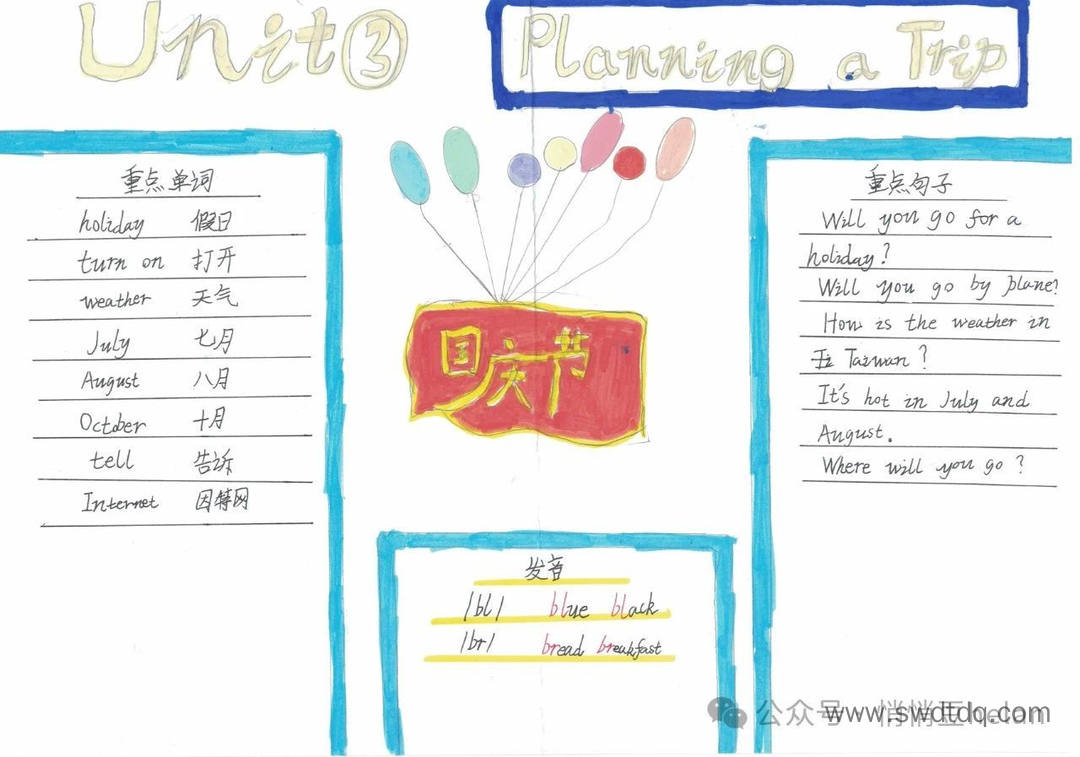 Unit ③
Planning a Trip
重点单词
holiday 假日
turn on 打开
weather 天气
July 七月
August 八月
October 十月
tell 告诉
Internet 因特网
国庆节
发音
/bl/ blue black
/br/ bread breakfast
重点句子
Will you go for a
holiday?
Will you go by plane?
How is the weather in
Taiwan?
It's hot in July and
August.
Where will you go?
公众号
www.swdtdq.com